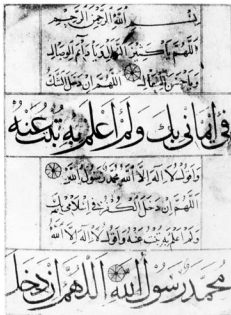 بسم الله الرحمن الرحيم
اللهم
اللهم ان دخل الشك
في ايماني بك ولم اعلم به تبت عنه
واقول لا اله الا الله محمد رسول الله
اللهم ان دخل الكفر في اسلامي بك
ولم اعلم به تبت عنه واقول لا اله الا الله
محمد رسول الله اللهم ان دخل